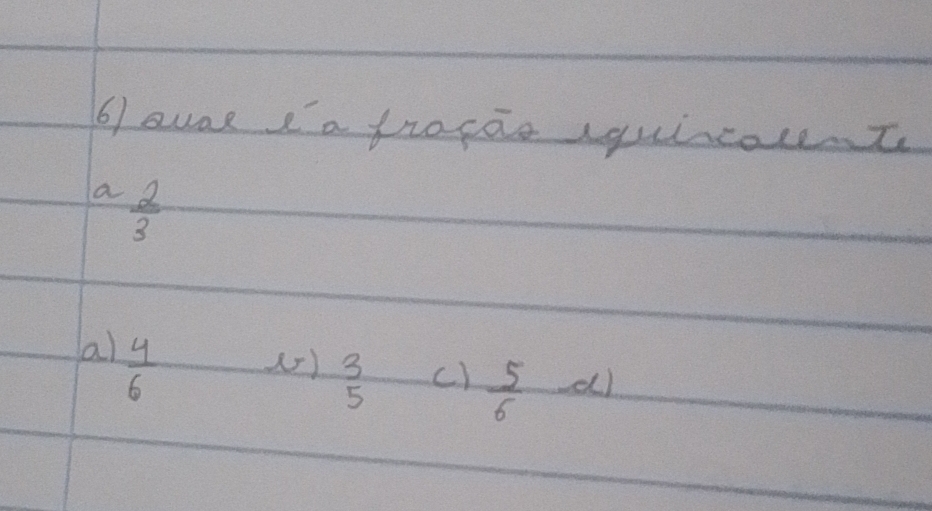 6) qual é a fração equivalente
a 2/3
a) 4/6 b) 3/5 c) 5/6 d)